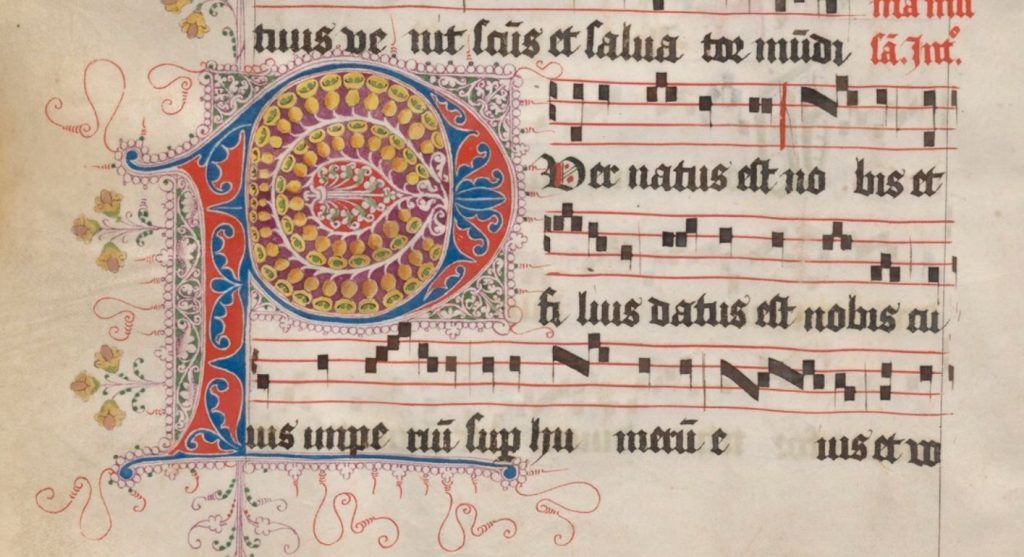 ma mis
tuus ve nit scūs et salua tor mūdi sā. Int°.
P Uer natus est no bis et
fi lius datus est nobis cu
ius impe riū suꝑ hu merū e ius et vo